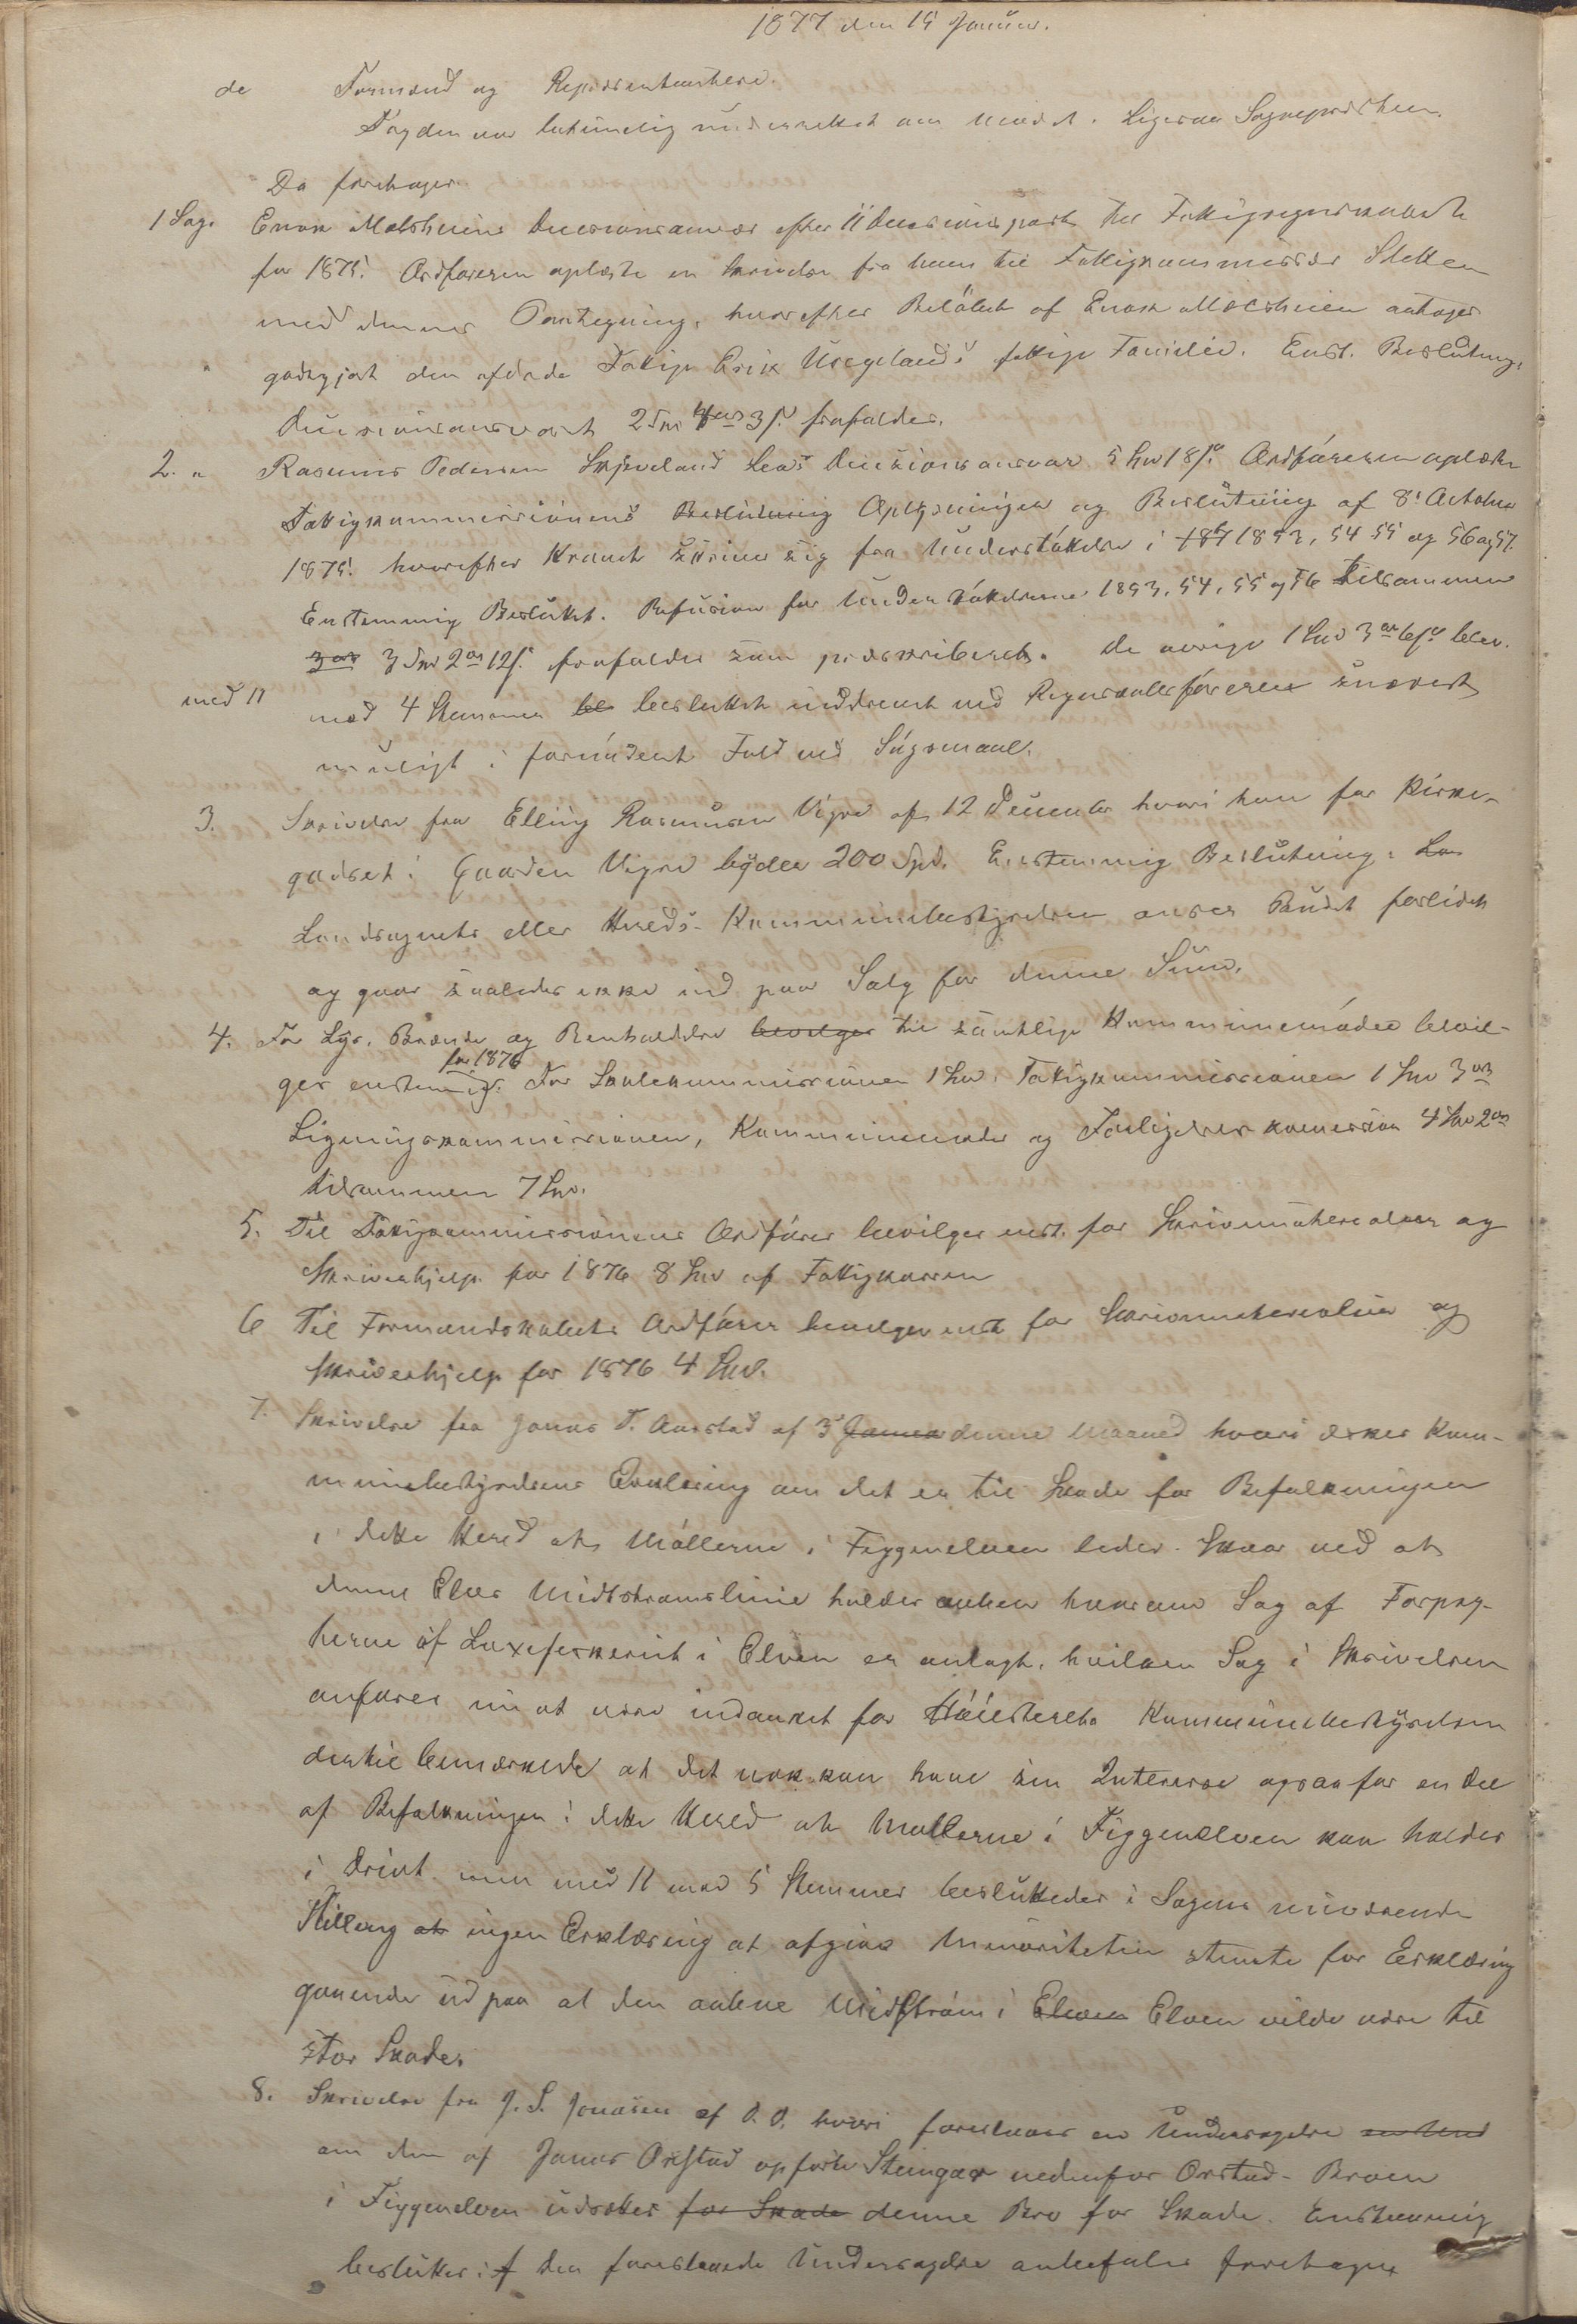 1877 den 15 Januar.
de Formænd og Repræsentantere.
Fogden var betimelig underrettet om Mødet. Ligesaa Sognepresten.
Da foretages
1 Sag. Enok Malmheims Decisionsansvar efter 11 Decisionspost til Fattigregnskabet
for 1875. Ordføreren oplæste en Skrivelse fra ham til Fattigkommissær Sletten
med dennes Paategning, hvorefter Beløbet af Enok Malmheim antages
godtgjort den afdøde Fattige Erik Uregelands fattige Familie. Enst. Beslutning:
Decisionsansvaret 2 Spd 4 ort 3 s. frafaldes.
2. " Rasmus Pedersen Skjæveland Leas Decisionsansvar 5 Spd 18 s. Ordføreren oplæste
Fattigkommissionens Beslutning Oplysninger og Beslutning af 8 October
1875. hvorefter Kravet skriver sig fra Understøttelse i 186 1853, 54 55 og 56 og 57.
Enstemmig Besluttet. Refusion for Understøttelserne 1853, 54, 55 og 56 tilsammen
3 ort 3 Spd 2 ort 12 s. frafaldes som præskriberet. De øvrige 1 Spd 3 ort 6 s. blev
med 11 mod 4 Stemmer be besluttet inddrevet ved Regnskabsføreren snarest
muligt i fornødent Fald ved Søgsmaal.
3. Skrivelse fra Elling Rasmusen Vigre af 12 December hvori han for Kirke-
godset i Gaarden Vigre byder 200 Spd. Enstemmig Beslutning: La
Landsognets eller Hreds-Kommunebestyrelsen anser Budet forlidet
og gaar saaledes ikke ind paa Salg for denne Sum.
4. For Lys, Brænde og Renholdelse bevilges til samtlige Kommunemøder bevil-
ges enstemmig: for 1876 For Skolekommissionen 1 Spd. Fattigkommissionen 1 Spd 3 ort
Ligningskommissionen, Kommunemøder og Forligelseskommission 4 Spd 2 ort
tilsammen 7 Spd.
5. Til Fattigkommissionens Ordfører bevilges enst. for Skrivmaterialier og
Skriverhjelp for 1876 8 Spd af Fattigkassen
6 Til Formandskabets Ordfører bevilges enst for Skrivmaterialier og
Skriverhjelp for 1876 4 Spd.
7. Skrivelse fra Jonas T. Aarstad af 3 Januar denne Maaned hvori æskes Kom-
munebestyrelsens Erklæring om det er til Skade for Befolkningen
i dette Hered at Møllerne i Figgenelven leder Skaar ved at
denne Elvs Midtstrømslinie holdes aaben hvorom Sag af Forpag-
terne af Laxefiskeriet i Elven er anlagt, hvilken Sag i Skrivelsen
anføres nu at være indanket for Høiesteret. Kommunebestyrelsen
dertil bemærkede at det nok kan have sin Interesse ogsaa for en Del
af Befolkningen i dette Hered at Møllerne i Figgenelven kan holdes
i Drivt men med 11 mod 5 Stemmer besluttedes i Sagens nuværende
Stilling at ingen Erklæring at afgive Minoriteten stemte for Erklæring
gaaende ud paa at den aabne Midtstrøm i Elven Elven vilde være til
stor Skade.
8. Skrivelse fra J. S. Jonasen af D. D. hvori foreslaaes en Undersøgelse
om den af Jonas Orstad opførte Stengar nedenfor Orstad-Broen
i Figgenelven udsætter for Skade denne Bro for Skade. Enstemmig
besluttes: At den foreslaaede Undersøgelse anbefales foretaget